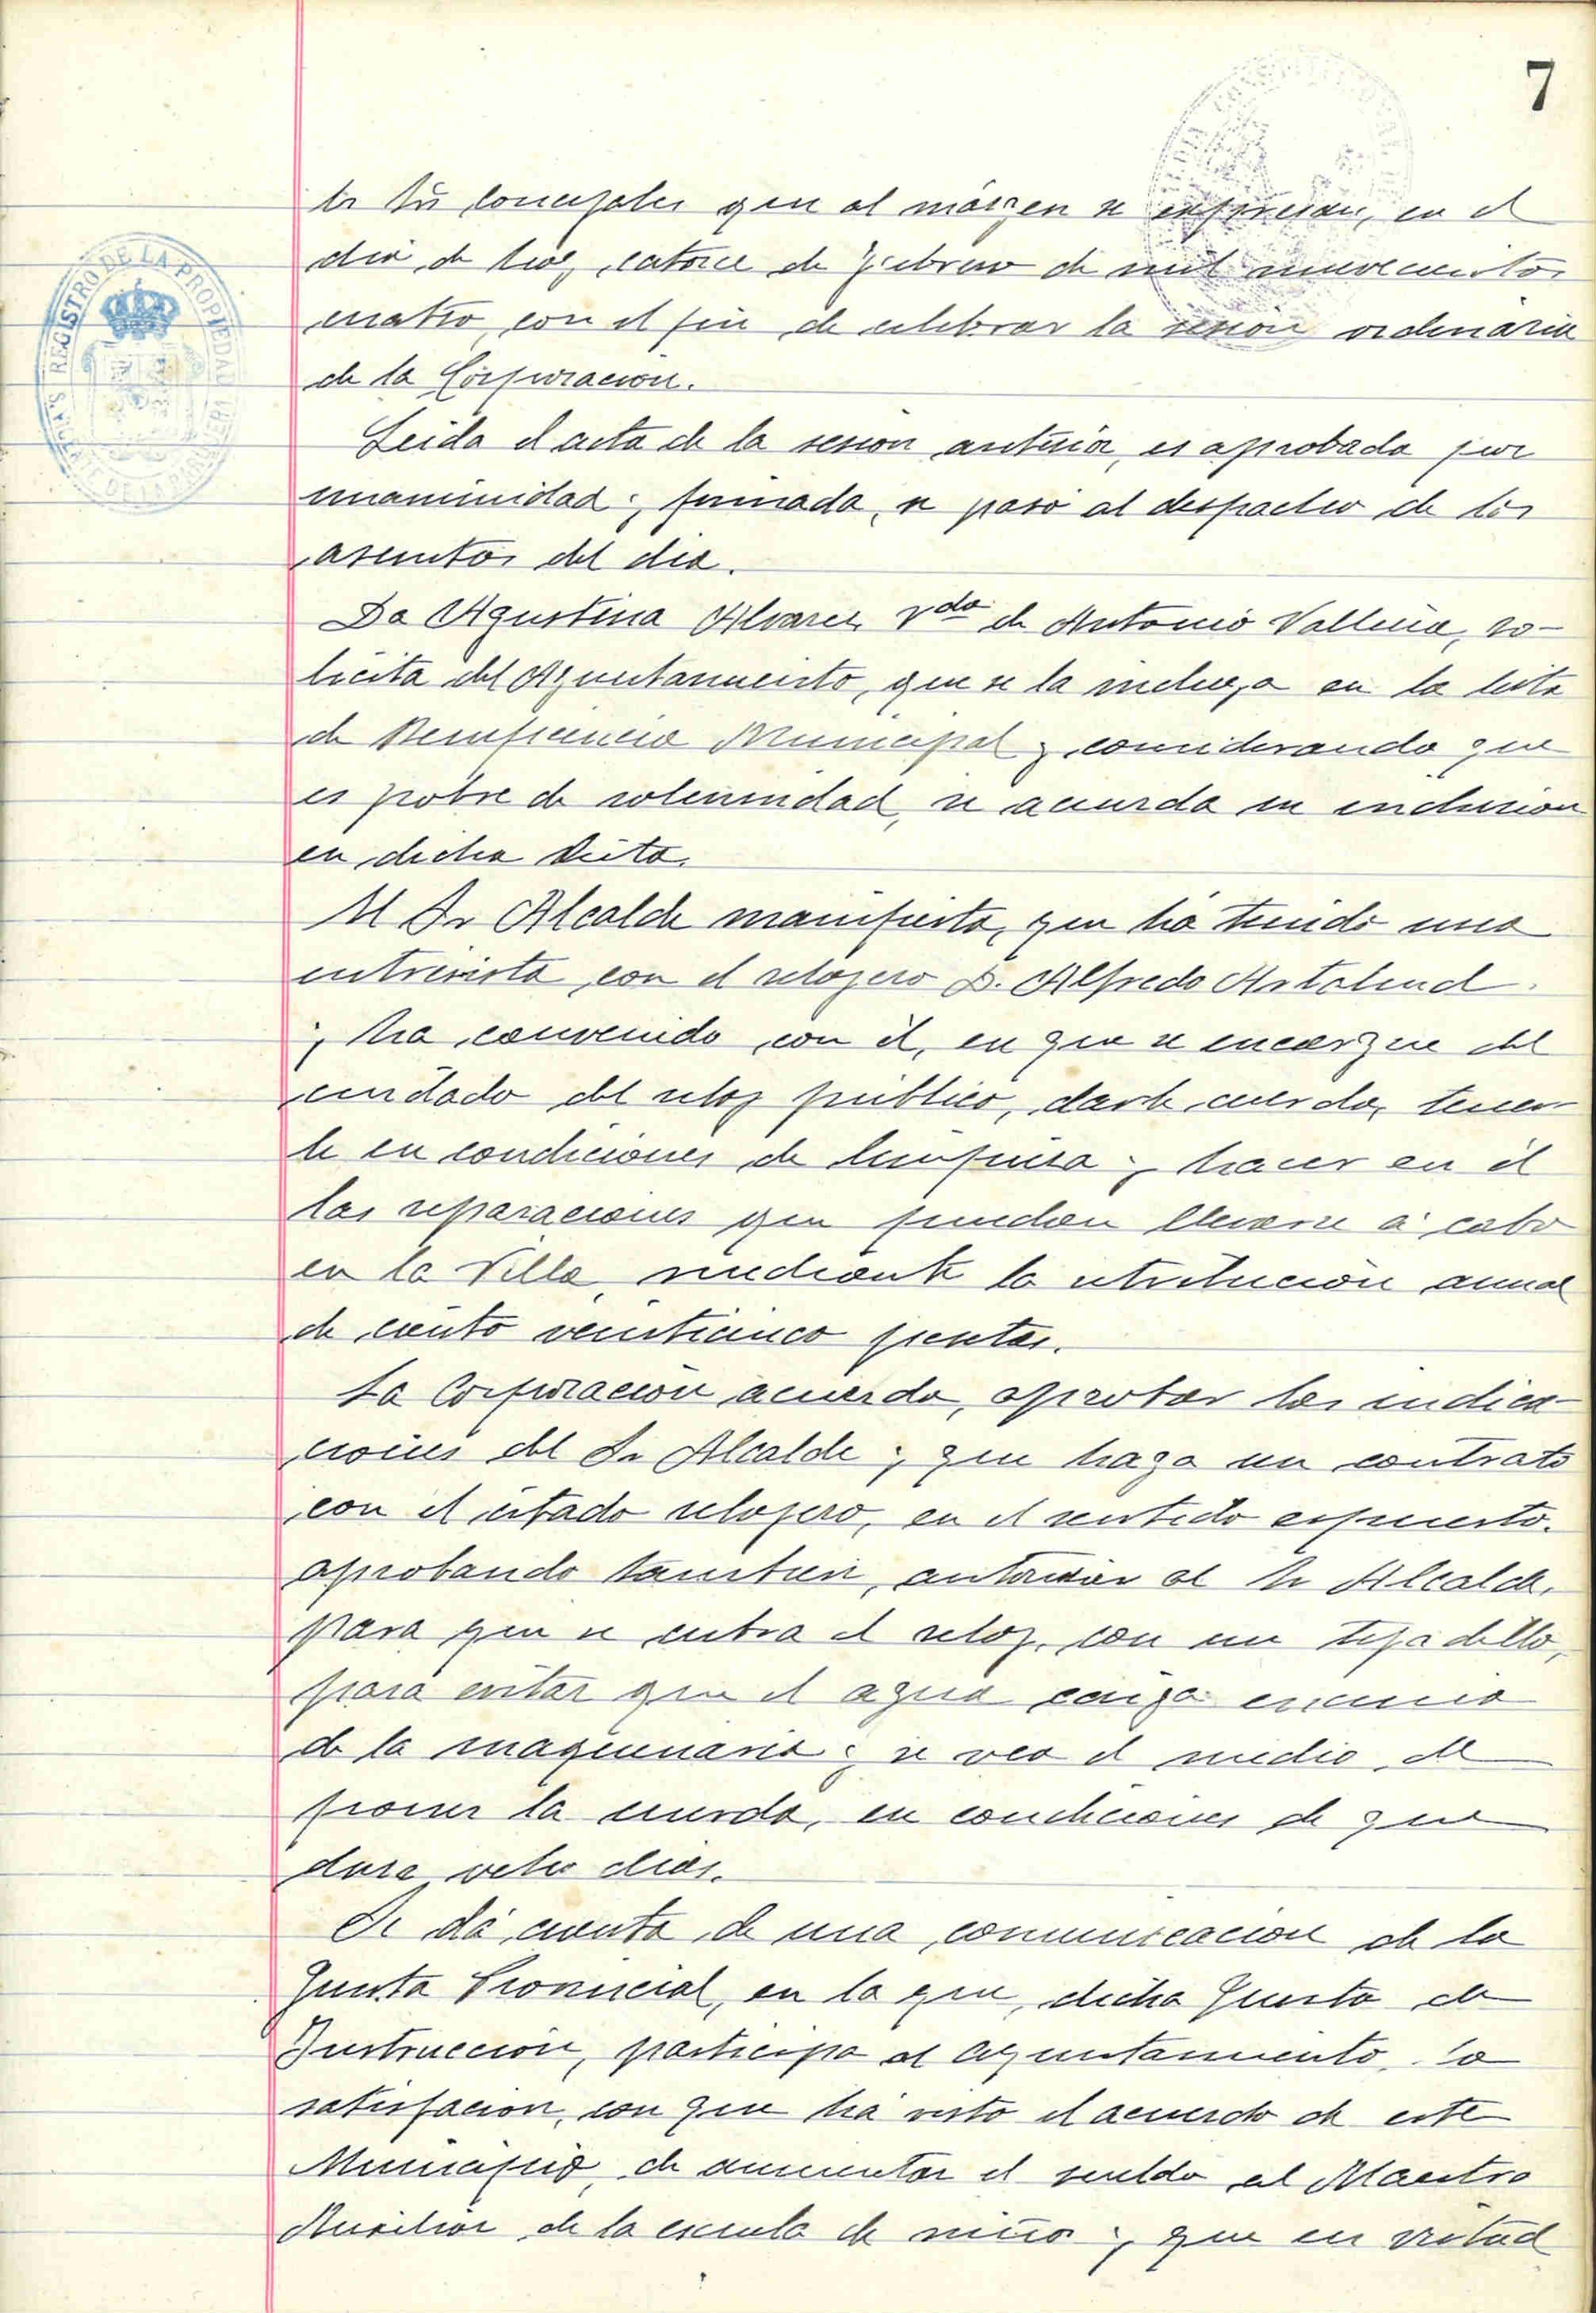 7
te los Concejales que al márgen se expresan, en el
dia de hoy, catorce de Febrero de mil novecientos
cuatro, con el fin de celebrar la sesion ordinaria
de la Corporacion.
Leida el acta de la sesion anterior, es aprobada por
unanimidad y firmada, se pasó al despacho de los
asuntos del dia.
Da Agustina Alvarez Vda de Antonio Vallina, so-
licita del Ayuntamiento, que se la incluya en la lista
de Beneficencia Municipal y considerando que
es pobre de solemnidad, se acuerda su inclusion
en dicha lista.
El Sr Alcalde manifiesta, que há tenido una
entrevista con el relojero D. Alfredo
y ha convenido con él, en que se encargue del
cuidado del reloj público, darle cuerda, tener-
le en condiciones de limpieza y hacer en él
las reparaciones que puedan llevarse á cabo
en la Villa, mediante la retribucion anual
de ciento veinticinco pesetas.
La Corporacion acuerda, aprobar las indica-
ciones del Sr Alcalde y que haga un contrato
con el citado relojero, en el sentido expuesto.
aprobando tambien, autorizar al Sr Alcalde,
para que se cubra el reloj, con un tejadillo,
para evitar que el agua caiga encima
de la maquinaria y se vea el medio de
poner la cuerda, en condiciones de que
dure ocho dias.
Se dá cuenta de una comunicacion de la
Junta Provincial, en la que, dicha Junta de
Instruccion, participa al Ayuntamiento, la
satisfacion, con que há visto el acuerdo de este
Municipio, de aumentar el sueldo al Maestro
Auxiliar de la escuela de niños y que en virtud
REGISTRO DE LA PROPIEDAD